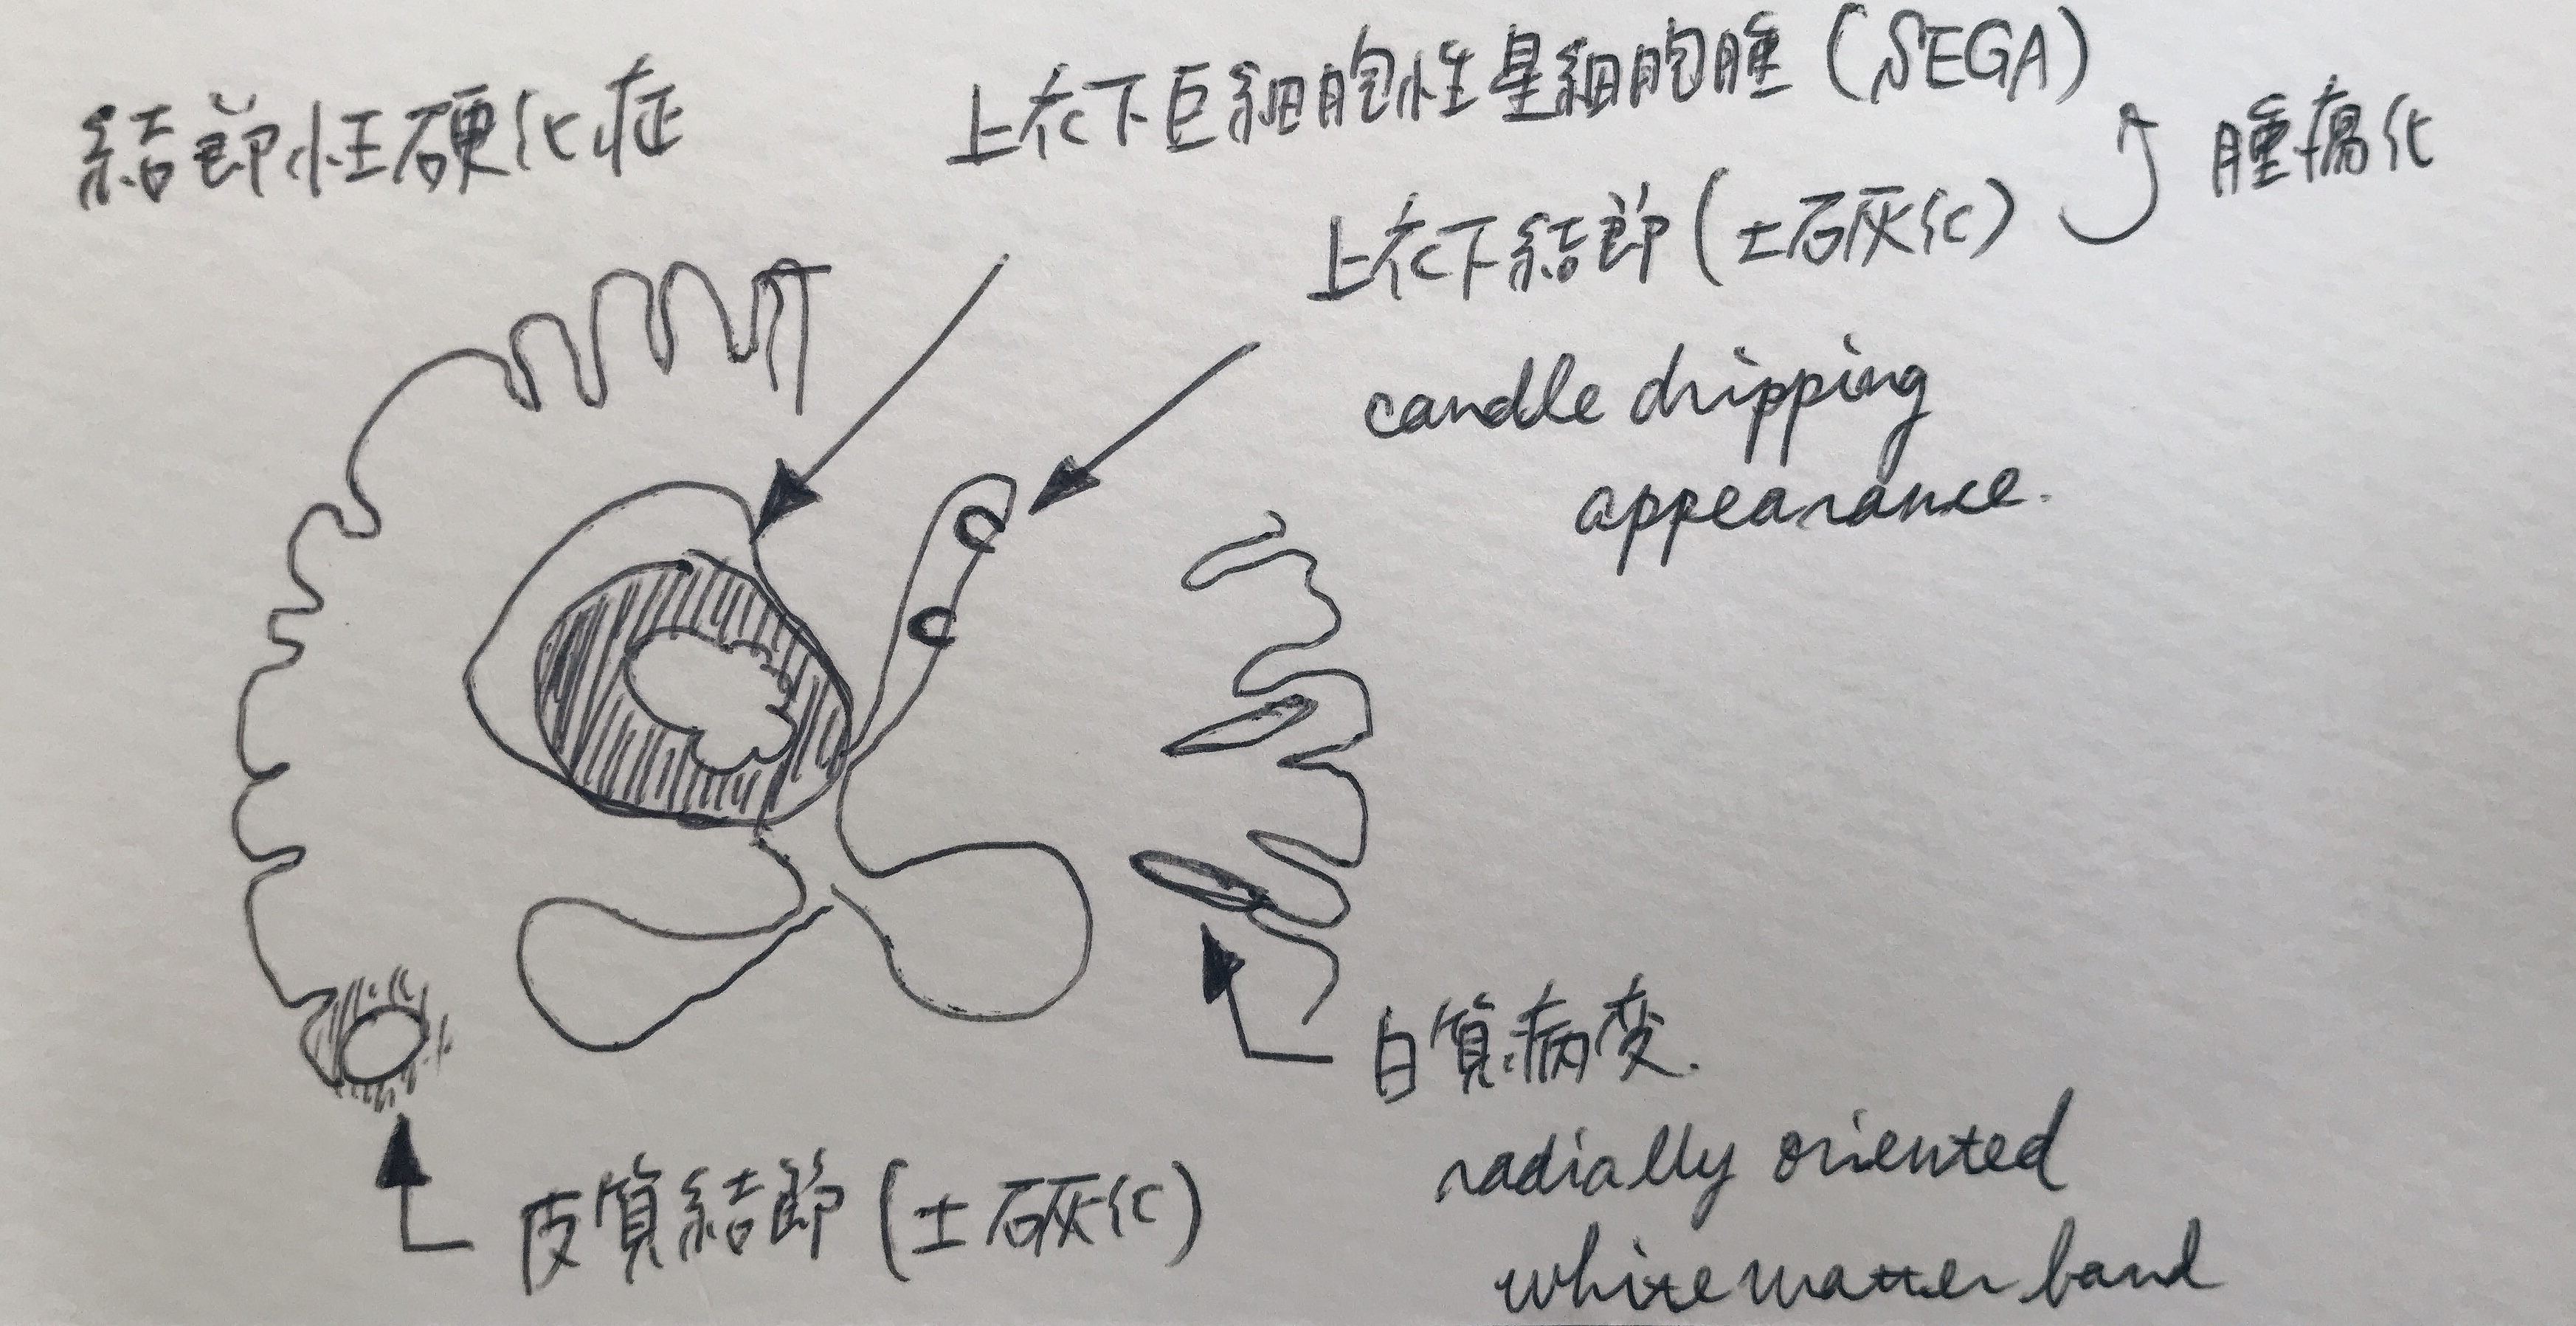 結節性硬化症
上衣下巨細胞性星細胞腫(SEGA)
腫瘍化
上衣下結節(±石灰化)
candle dripping
appearance.
白質病変.
radially oriented
white matter band
皮質結節(±石灰化)